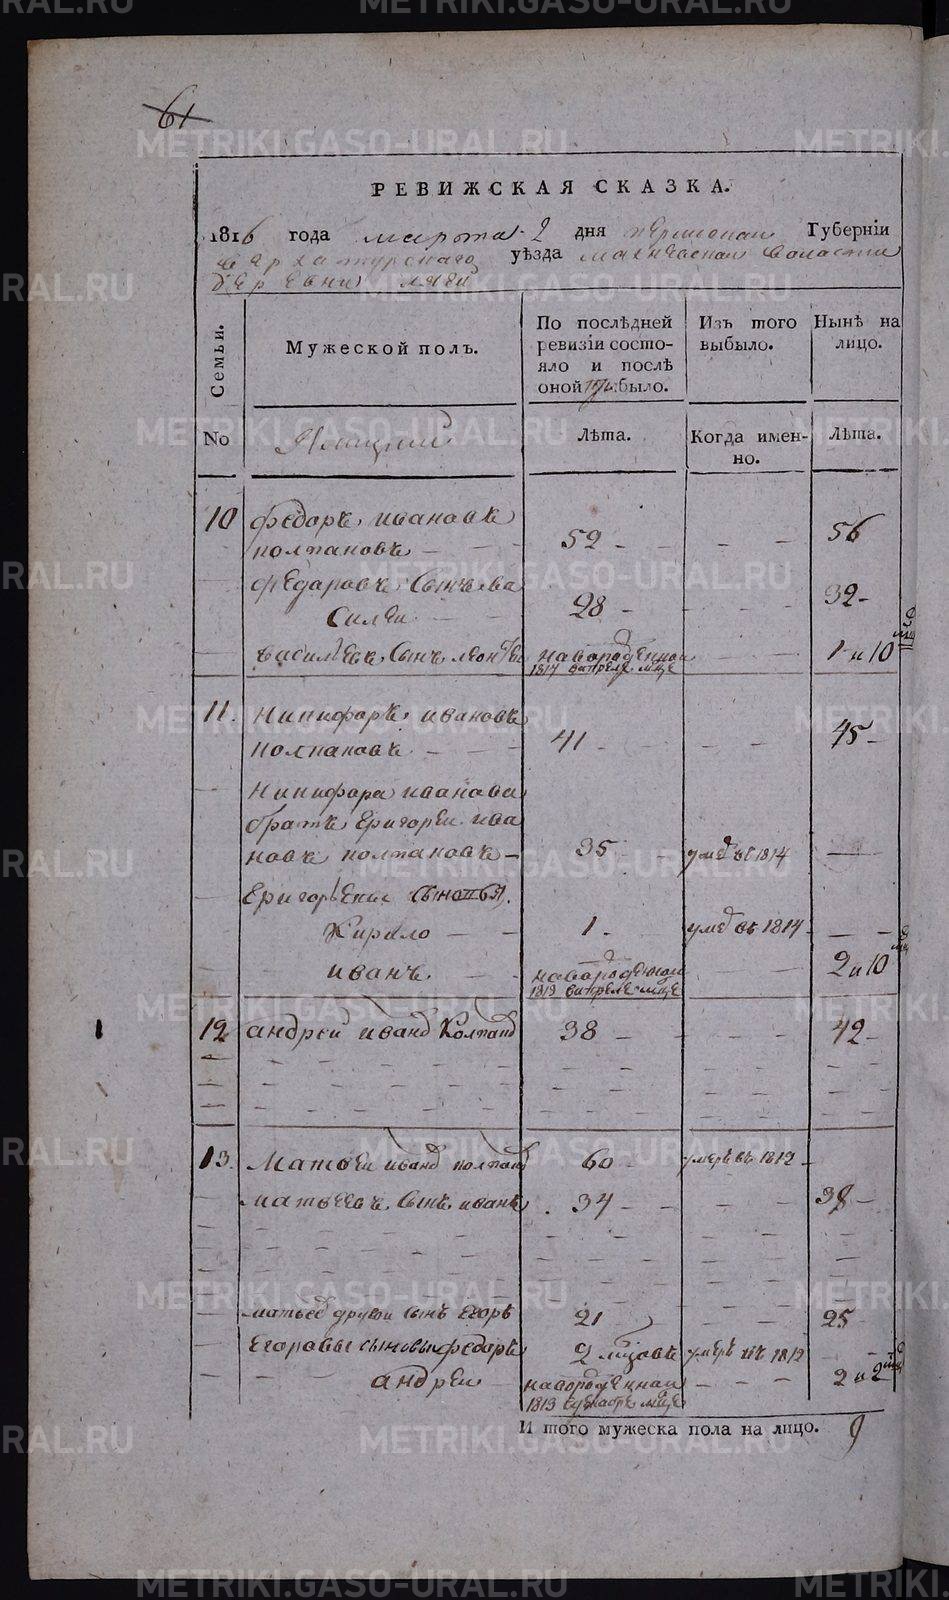 61
РЕВИЖСКАЯ СКАЗКА.
1816 года марта 2 дня пермской Губернiи
верхатурскаго уѣзда махневской валасти
деревни
Семьи.
Мужеской полъ.
По послѣдней ревизiи состояло и послѣ оной при было.
Изъ того выбыло.
Нынѣ на лицо.
No
Лѣта.
Когда именно.
Лѣта.
10 федоръ ивановъ
полпановъ 52 56
федаровъ сынъ ва
силеи 28 32
васильевъ сынъ леонтеи наворожденнои 1 и 10 мцов
1814 вапреле мце
11. никифоръ ивановъ
полпановъ 41 45
никифора иванова
братъ григореи ива
новъ полпановъ 35 умре въ 1814
григорьевы сыновья
Кирило 1 умре въ 1814
иванъ наворожденои 2 и 10 мцов
1813 вапреле мце
12 андреи иванов Колпанов 38 42
13. Матвеи иванов полпанов 60 умеръ въ 1812
матвеевъ сынъ иванъ 34 38
матвеев другои сынъ егоръ 21 25
Егоравы сыновьи федоръ 2 мцовъ умеръ въ 1812
андреи наворожденнаи 2 и 2 мцов
1813 мце
И того мужеска пола на лицо. 9
METRIKI.GASO-URAL.RU